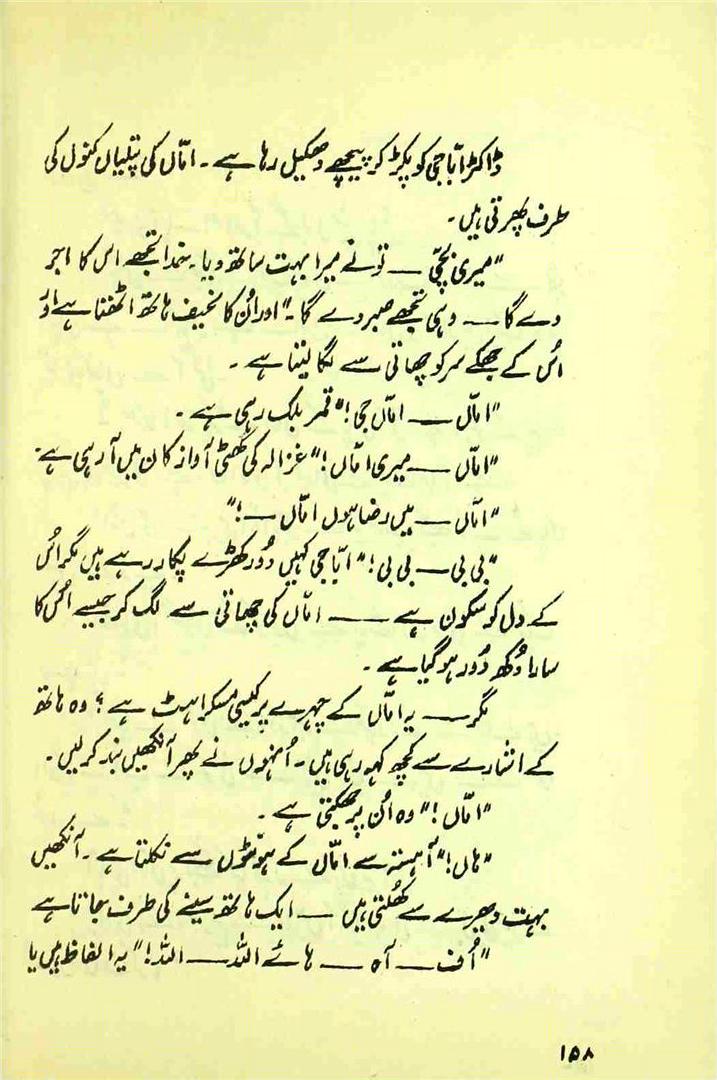 ڈاکٹر اباجی کو پکڑ کر پیچھے دھکیل رہا ہے۔ اماں کی پتلیاں کنول کی
طرف پھرتی ہیں۔
"میری بچی — تو نے میرا بہت ساتھ دیا۔ خدا تجھے اس کا اجر
دے گا — وہی تجھے صبر دے گا۔" اور اُن کا نحیف ہاتھ اٹھتا ہے اور
اُس کے جھکے سر کو چھاتی سے لگا لیتا ہے۔
"اماں — اماں جی!" قمر بلک رہی ہے۔
"اماں — میری اماں!" غزالہ کی گھٹی آواز کان میں آ رہی ہے۔
"اماں — میں رضا ہوں اماں —!"
"بی بی — بی بی!" ابّا جی کہیں دُور کھڑے پکار رہے ہیں مگر اُس
کے دل کو سکون ہے — اماں کی چھاتی سے لگ کر جیسے اُس کا
سارا دُکھ دُور ہو گیا ہے۔
مگر — یہ اماں کے چہرے پر کیسی مسکراہٹ ہے؟ وہ ہاتھ
کے اشارے سے کچھ کہہ رہی ہیں۔ اُنہوں نے پھر آنکھیں بند کر لیں۔
"اماں!" وہ اُن پر جھکتی ہے۔
"ہاں!" آہستہ سے اماں کے ہونٹوں سے نکلتا ہے۔ آنکھیں
بہت دھیرے سے کُھلتی ہیں — ایک ہاتھ سینے کی طرف جاتا ہے
"اُف — آہ — ہائے اللہ — اللہ!" یہ الفاظ ہیں یا
۱۵۸